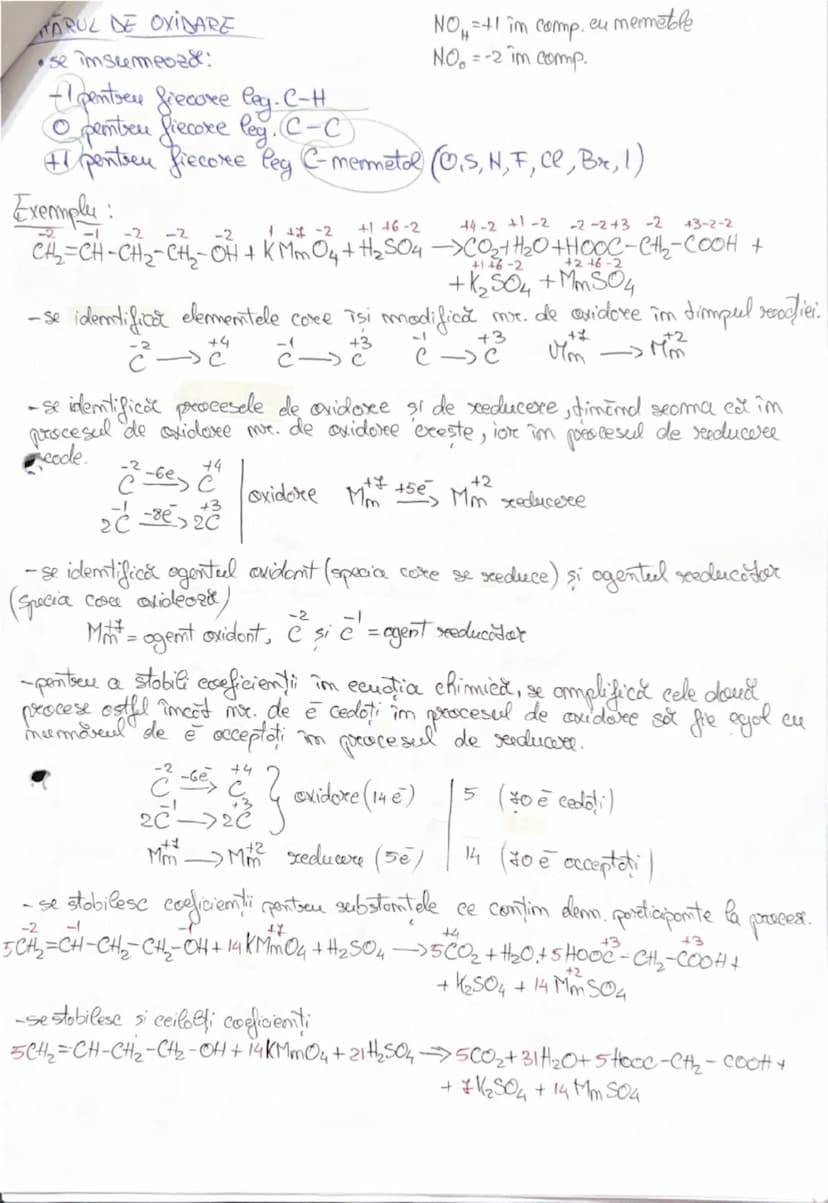 MĂRUL DE OXIDARE
NO_H = +1 în comp. cu nemetale
NO_O = -2 în comp.
• se însumează:
+1 pentru fiecare leg. C-H
0 pentru fiecare leg. C-C
+1 pentru fiecare leg C-nemetal (O, S, N, F, Cl, Br, I)
Exemplu:
-2 -1 -2 -2 -2 1 +7 -2 +1 +6 -2 +4 -2 +1 -2 -2 -2 +3 -2 +3 -2 -2
CH₂=CH-CH₂-CH₂-OH + KMnO₄ + H₂SO₄ → CO₂ + H₂O + HOOC-CH₂-COOH +
+1 +6 -2 +2 +6 -2
+ K₂SO₄ + MnSO₄
- se identifică elementele care își modifică nr. de oxidare în timpul reacției.
C⁻² → C⁺⁴ C⁻¹ → C⁺³ C⁻¹ → C⁺³ Mn⁺⁷ → Mn⁺²
- se identifică procesele de oxidare și de reducere, ținând seama că în
procesul de oxidare nr. de oxidare crește, iar în procesul de reducere
scade.
C⁻² -6e⁻→ C⁺⁴ | oxidare Mn⁺⁷ +5e⁻→ Mn⁺² reducere
2C⁻¹ -8e⁻→ 2C⁺³
- se identifică agentul oxidant (specia care se reduce) și agentul reducător
(specia care oxidează)
Mn⁺⁷ = agent oxidant, C⁻² și C⁻¹ = agent reducător
- pentru a stabili coeficienții în ecuația chimică, se amplifică cele două
procese astfel încât nr. de e⁻ cedați în procesul de oxidare să fie egal cu
numărul de e⁻ acceptați în procesul de reducere.
C⁻² -6e⁻→ C⁺⁴ } oxidare (14e⁻) | 5 (70 e⁻ cedați)
2C⁻¹ → 2C⁺³
Mn⁺⁷ → Mn⁺² reducere (5e⁻) | 14 (70 e⁻ acceptați)
- se stabilesc coeficienții pentru substanțele ce conțin elem. participante la proces.
-2 -1 -1 +7 +4 +3 +3
5CH₂=CH-CH₂-CH₂-OH + 14KMnO₄ + H₂SO₄ → 5CO₂ + H₂O + 5HOOC-CH₂-COOH +
+2
+ K₂SO₄ + 14MnSO₄
- se stabilesc și ceilalți coeficienți
5CH₂=CH-CH₂-CH₂-OH + 14KMnO₄ + 21H₂SO₄ → 5CO₂ + 31H₂O + 5HOOC-CH₂-COOH +
+ 7K₂SO₄ + 14MnSO₄